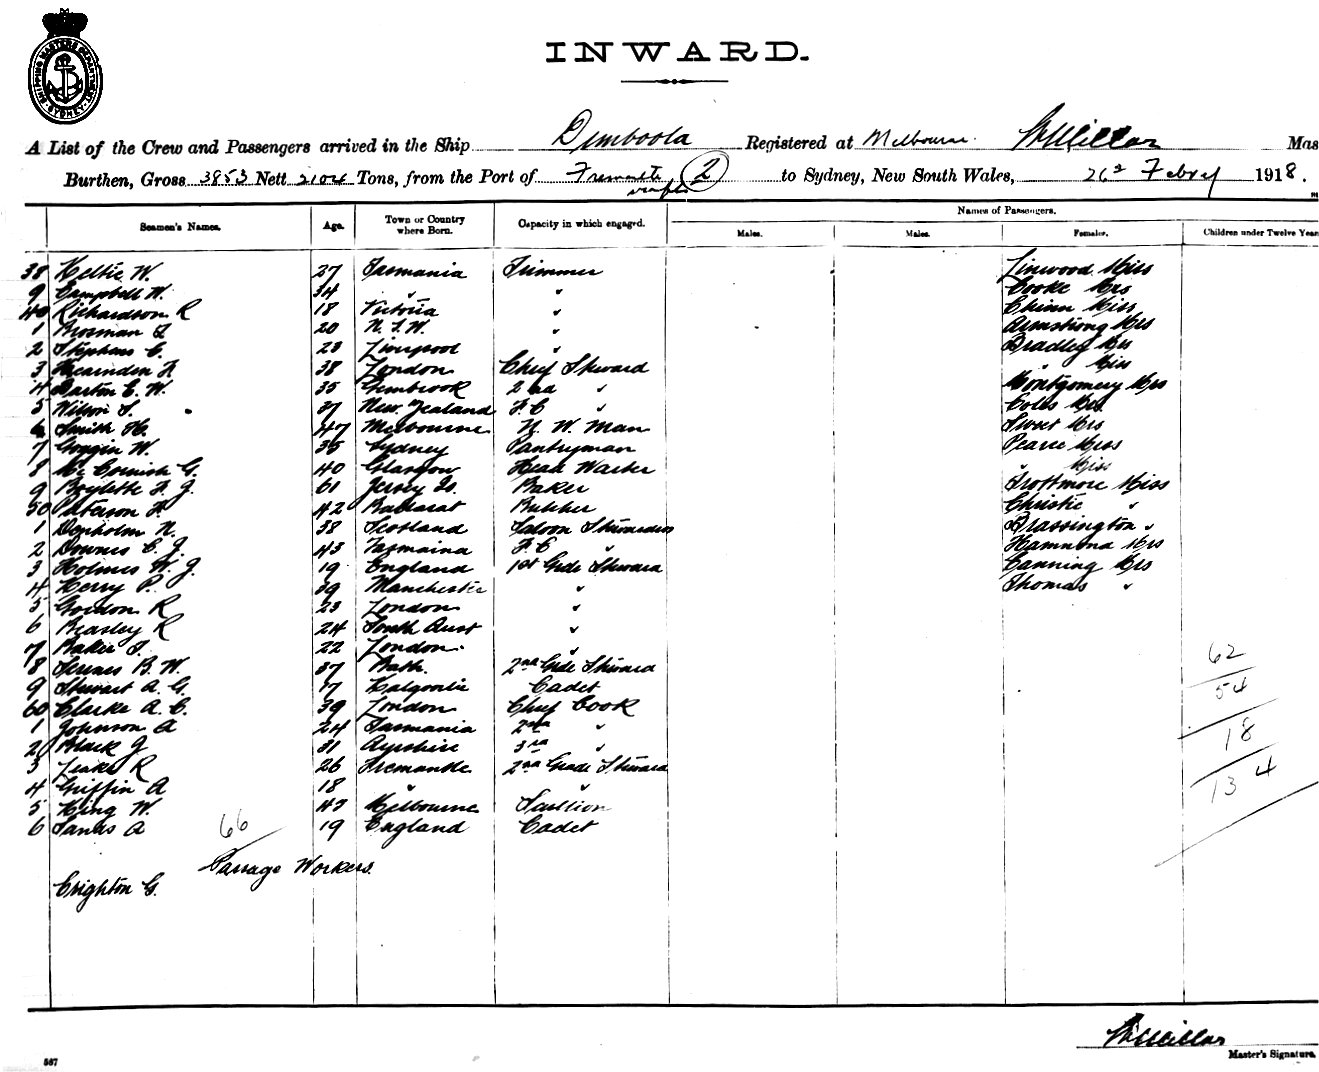 SHIPPING MASTERS DEPARTMENT SYDNEY
INWARD.
A List of the Crew and Passengers arrived in the Ship Dimboola Registered at Melbourne Mas
Burthen, Gross 3853 Nett 2104 Tons, from the Port of Fremantle 2 to Sydney, New South Wales, 26 Febry 1918.
Seamen's Names. Age. Town or Country where Born. Capacity in which engaged. Names of Passengers.
Males. Males. Females. Children under Twelve Year
38 Keltie W. 27 Tasmania Trimmer Linwood Miss
9 Campbell W. 34 " " Cooke Mrs
40 Richardson R 18 Victoria " Chinn Miss
1 Mosman 20 N.S.W. " Armstrong Mrs
2 Stephens C. 23 Liverpool " Bradley Mrs
3 Hearnden F. 38 London Chief Steward " Miss
4 Barton E. W. 35 Gembrook 2nd " Montgomery Mrs
5 Wilson S. 37 New Zealand F.C " Coles Mrs
6 Smith H. 47 Melbourne N. W. Man Sweet Mrs
7 Goggin W. 35 Sydney Pantryman Pearce Mrs
8 McCormish G. 40 Glasgow Head Waiter " Miss
9 Boylette F. J. 61 Jersey Is. Baker Miss
50 Paterson F. 42 Ballarat Butcher Christie "
1 Denholm N. 38 Scotland Saloon Stewardess Brassington "
2 Downes E. J. 43 Tasmaina F.C " Hammond Mrs
3 Holmes W. J. 19 England 1st Grde Steward Canning Mrs
4 Kerry P. 39 Manchester " Thomas "
5 Gordon R 23 London "
6 Beasley R 24 South Aust "
7 Baker 22 London. "
8 B. W. 37 Bath. 2nd Grde Steward
9 Stewart A. G. 17 Kalgoorlie Cadet
60 Clarke A. C. 39 London Chief Cook
1 Johnson A 24 Tasmania 2nd "
2 Black J 31 Ayrshire 3rd "
3 Leake R 26 Fremantle 2nd Grade Steward
4 Griffin A 18 " "
5 King W. 47 Melbourne Scullion
6 Sands A 19 England Cadet
66
Passage Workers.
Crighton G.
62
54
18
134
Master's Signature.
587